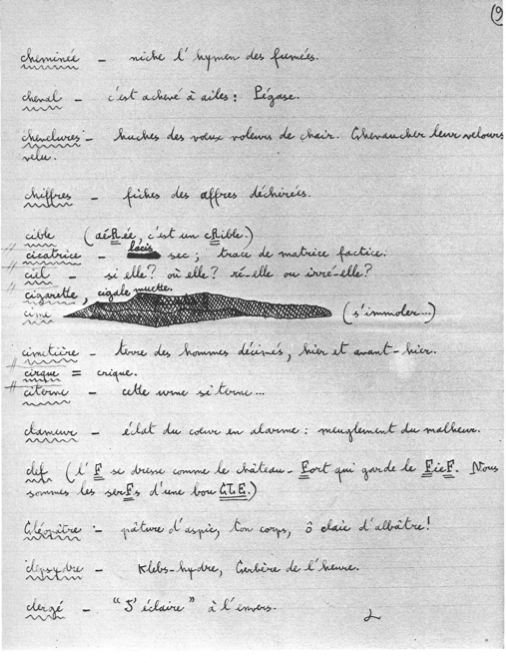 9
cheminée – niche l'hymen des fumées.
cheval – c'est achevé à ailes : Pégase.
chevelures – huches des vœux voleurs de chair. Chevaucher leur velours
velu.
chiffres – fiches des affres déchirées.
cible (aéRée, c'est un cRible.)
cicatrice – lacis sec ; trace de matrice factice.
ciel – si elle ? où elle ? ré-elle ou irré-elle ?
cigarette, cigale muette.
cime (s'immoler...)
cimetière – terre des hommes décimés, hier et avant-hier.
cirque = crique.
citerne – cette urne si terne...
clameur – éclat du cœur en alarme : meuglement du malheur.
clef (l'F se dresse comme le château-Fort qui garde le FieF. Nous
sommes les serFs d'une bou CLE.)
Cléopâtre – pâture d'aspic, ton corps, ô claie d'albâtre !
clepsydre – Klebs-hydre, Cerbère de l'heure.
clergé – "S'éclaire" à l'envers.